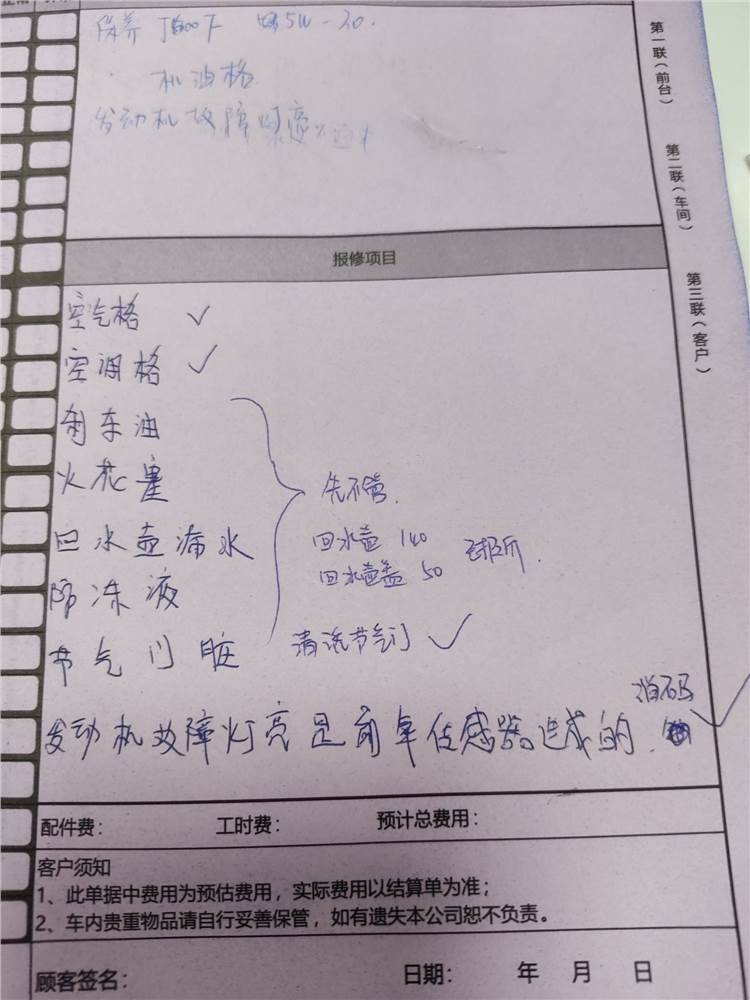 保养 5W-30.
机油格
发动机故障灯亮
第一联(前台)
第二联(车间)
第三联(客户)
报修项目
空气格 ✓
空调格 ✓
刹车油
火花塞
回水壶漏水
防冻液
节气门脏
先不管.
回水壶 140
回水壶盖 50
清洗节气门 ✓
消码 ✓
发动机故障灯亮是前氧传感器造成的.
配件费: 工时费: 预计总费用:
客户须知
1、此单据中费用为预估费用，实际费用以结算单为准；
2、车内贵重物品请自行妥善保管，如有遗失本公司恕不负责。
顾客签名: 日期: 年 月 日